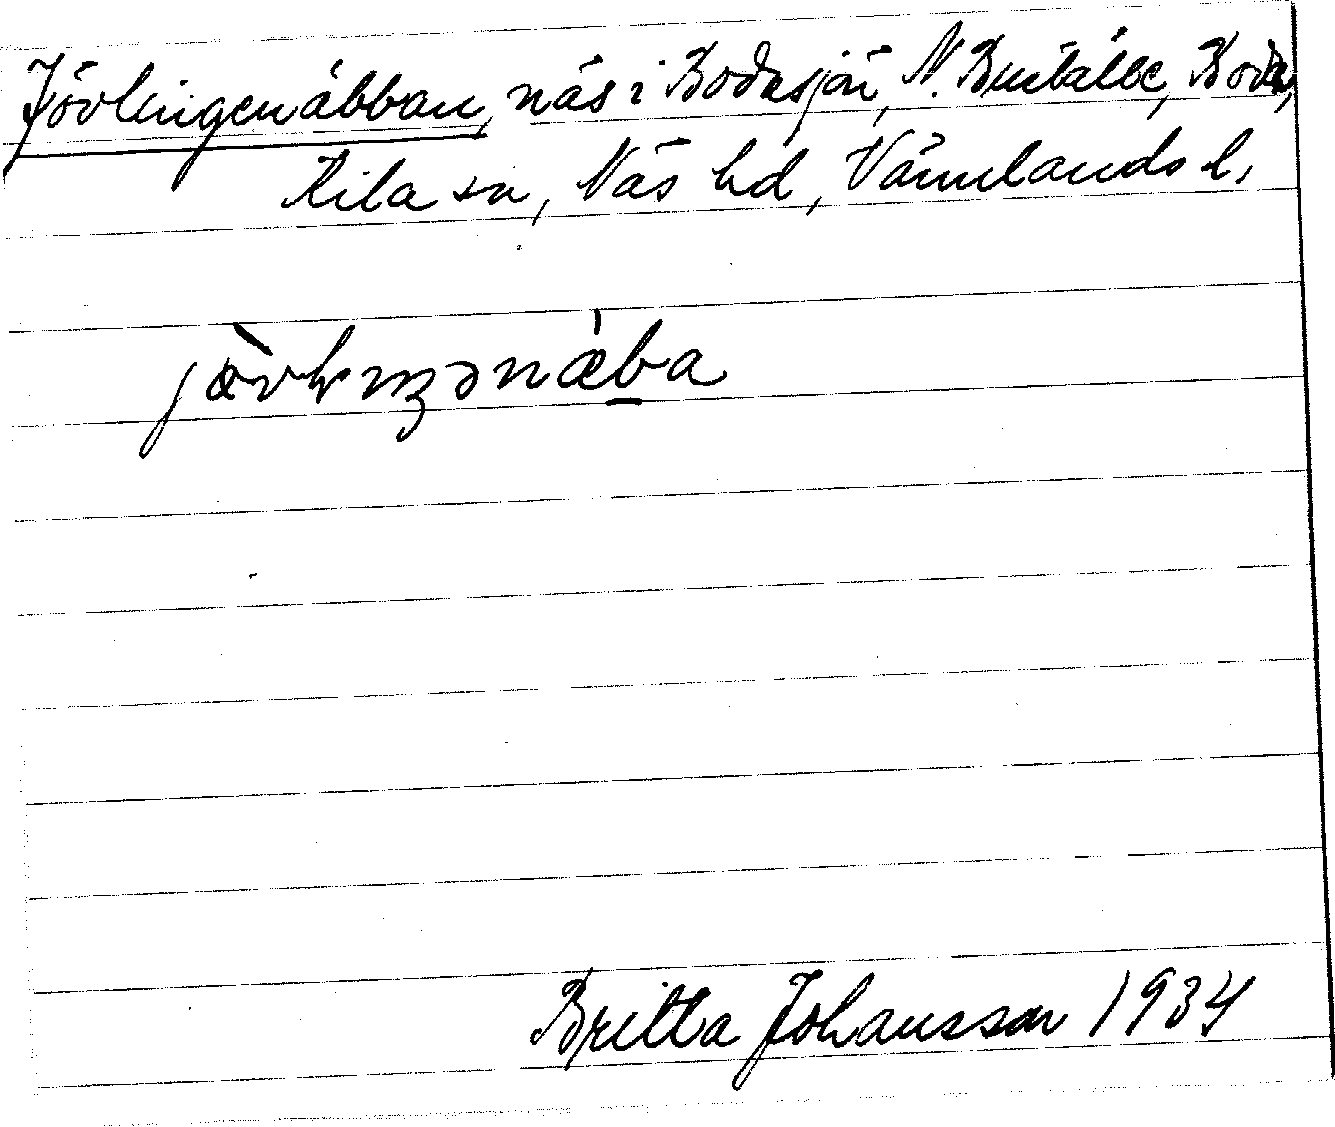 Jövlingenäbban, näs i Bodasjön, N. Buttälve, Boda,
Kila sn, Näs hd, Värmlands l.
jövlıŋənäba
Britta Johansson 1934